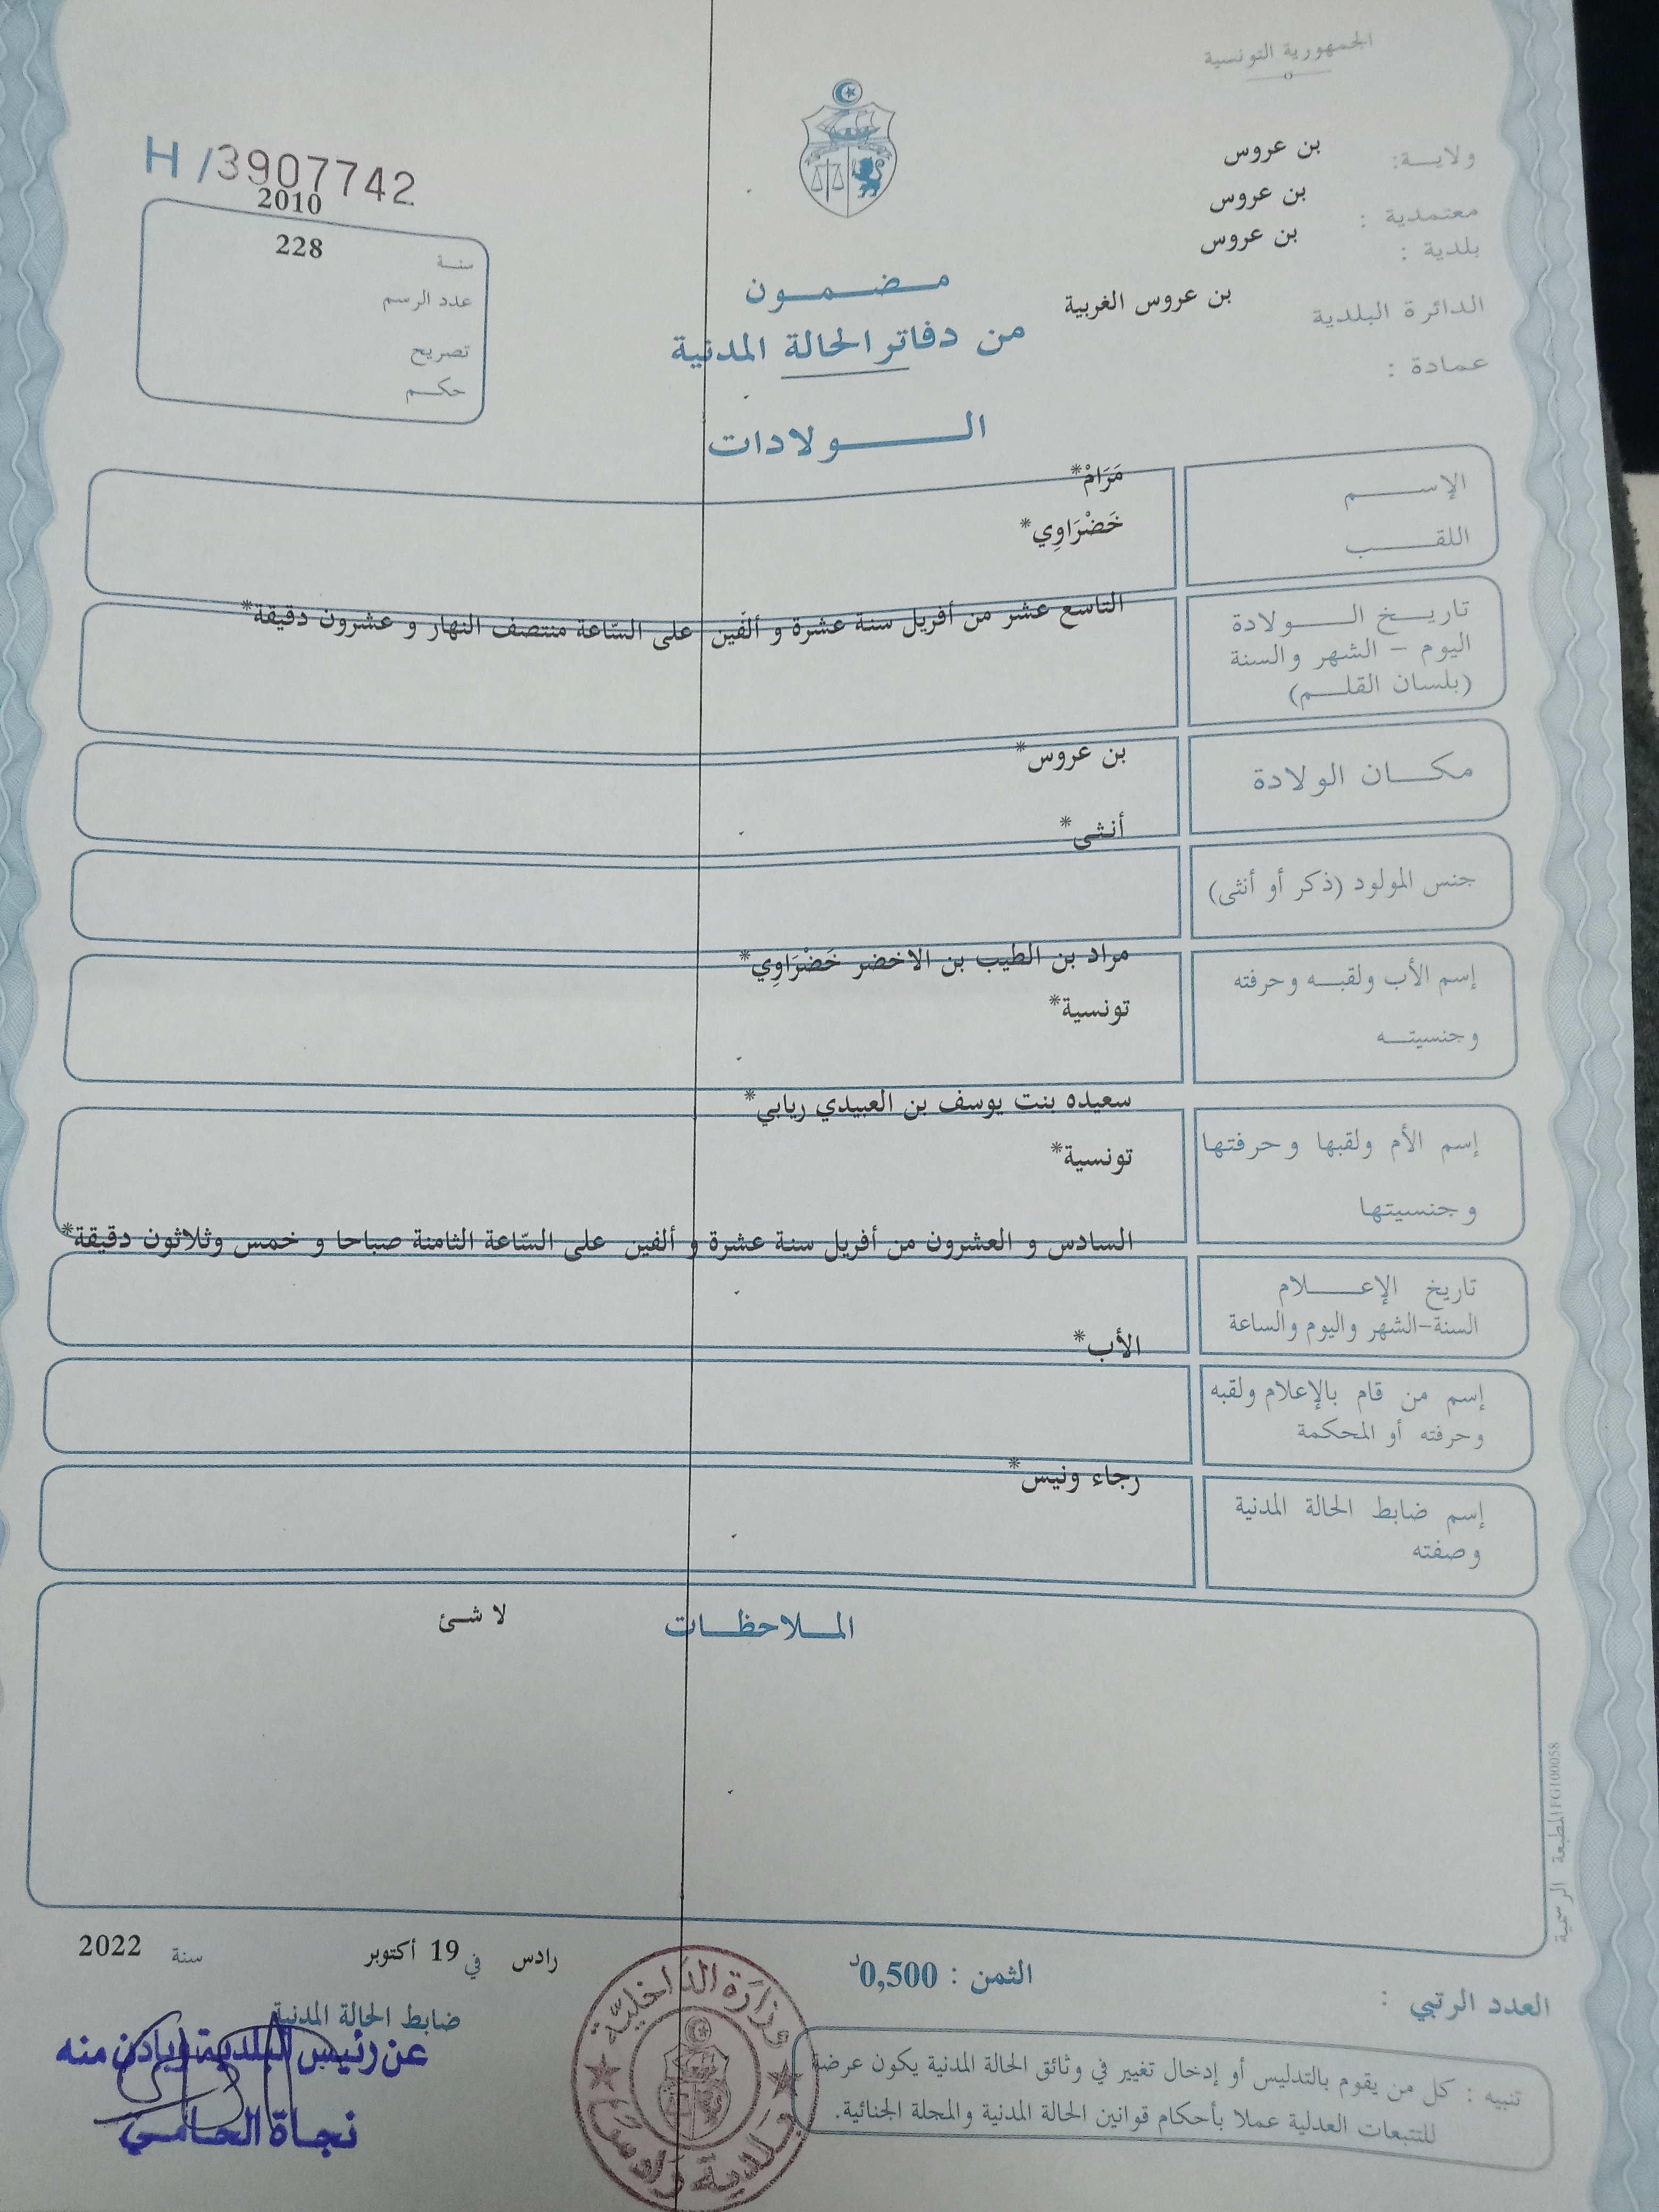 الجمهورية التونسية
ولايـــة: بن عروس
معتمدية : بن عروس
بلدية : بن عروس
الدائرة البلدية بن عروس الغربية
عمادة :
H /3907742
2010
سنـة 228
عدد الرسم
تصريح
حكـم
مـضـمـون
من دفاتر الحالة المدنية
الـولادات
الإســـم مَرَامْ*
اللقـــب خَضْرَاوِي*
تاريـخ الــولادة التاسع عشر من أفريل سنة عشرة و ألفين على السّاعة منتصف النهار و عشرون دقيقة*
اليوم - الشهر والسنة
(بلسان القلـم)
مكــان الولادة بن عروس*
أنثى*
جنس المولود (ذكر أو أنثى)
إسم الأب ولقبـه وحرفته مراد بن الطيب بن الاخضر خَضْرَاوِي*
وجنسيتـه تونسية*
سعيده بنت يوسف بن العبيدي ريابي*
إسم الأم ولقبها وحرفتها
وجنسيتها تونسية*
السادس و العشرون من أفريل سنة عشرة و ألفين على السّاعة الثامنة صباحا و خمس وثلاثون دقيقة*
تاريخ الإعــلام
السنة-الشهر واليوم والساعة
الأب*
إسم من قام بالإعلام ولقبه
وحرفته أو المحكمة
رجاء ونيس*
إسم ضابط الحالة المدنية
وصفته
المـلاحظـات لا شئ
المطبعة الرسمية FG100058
رادس في 19 أكتوبر سنة 2022
ضابط الحالة المدنية
عن رئيس البلدية وبإذن منه
نجاة الحامي
وزارة الداخلية
بلدية رادس
الثمن : 0,500د
العدد الرتبي :
تنبيه : كل من يقوم بالتدليس أو إدخال تغيير في وثائق الحالة المدنية يكون عرضة
للتتبعات العدلية عملا بأحكام قوانين الحالة المدنية والمجلة الجنائية.